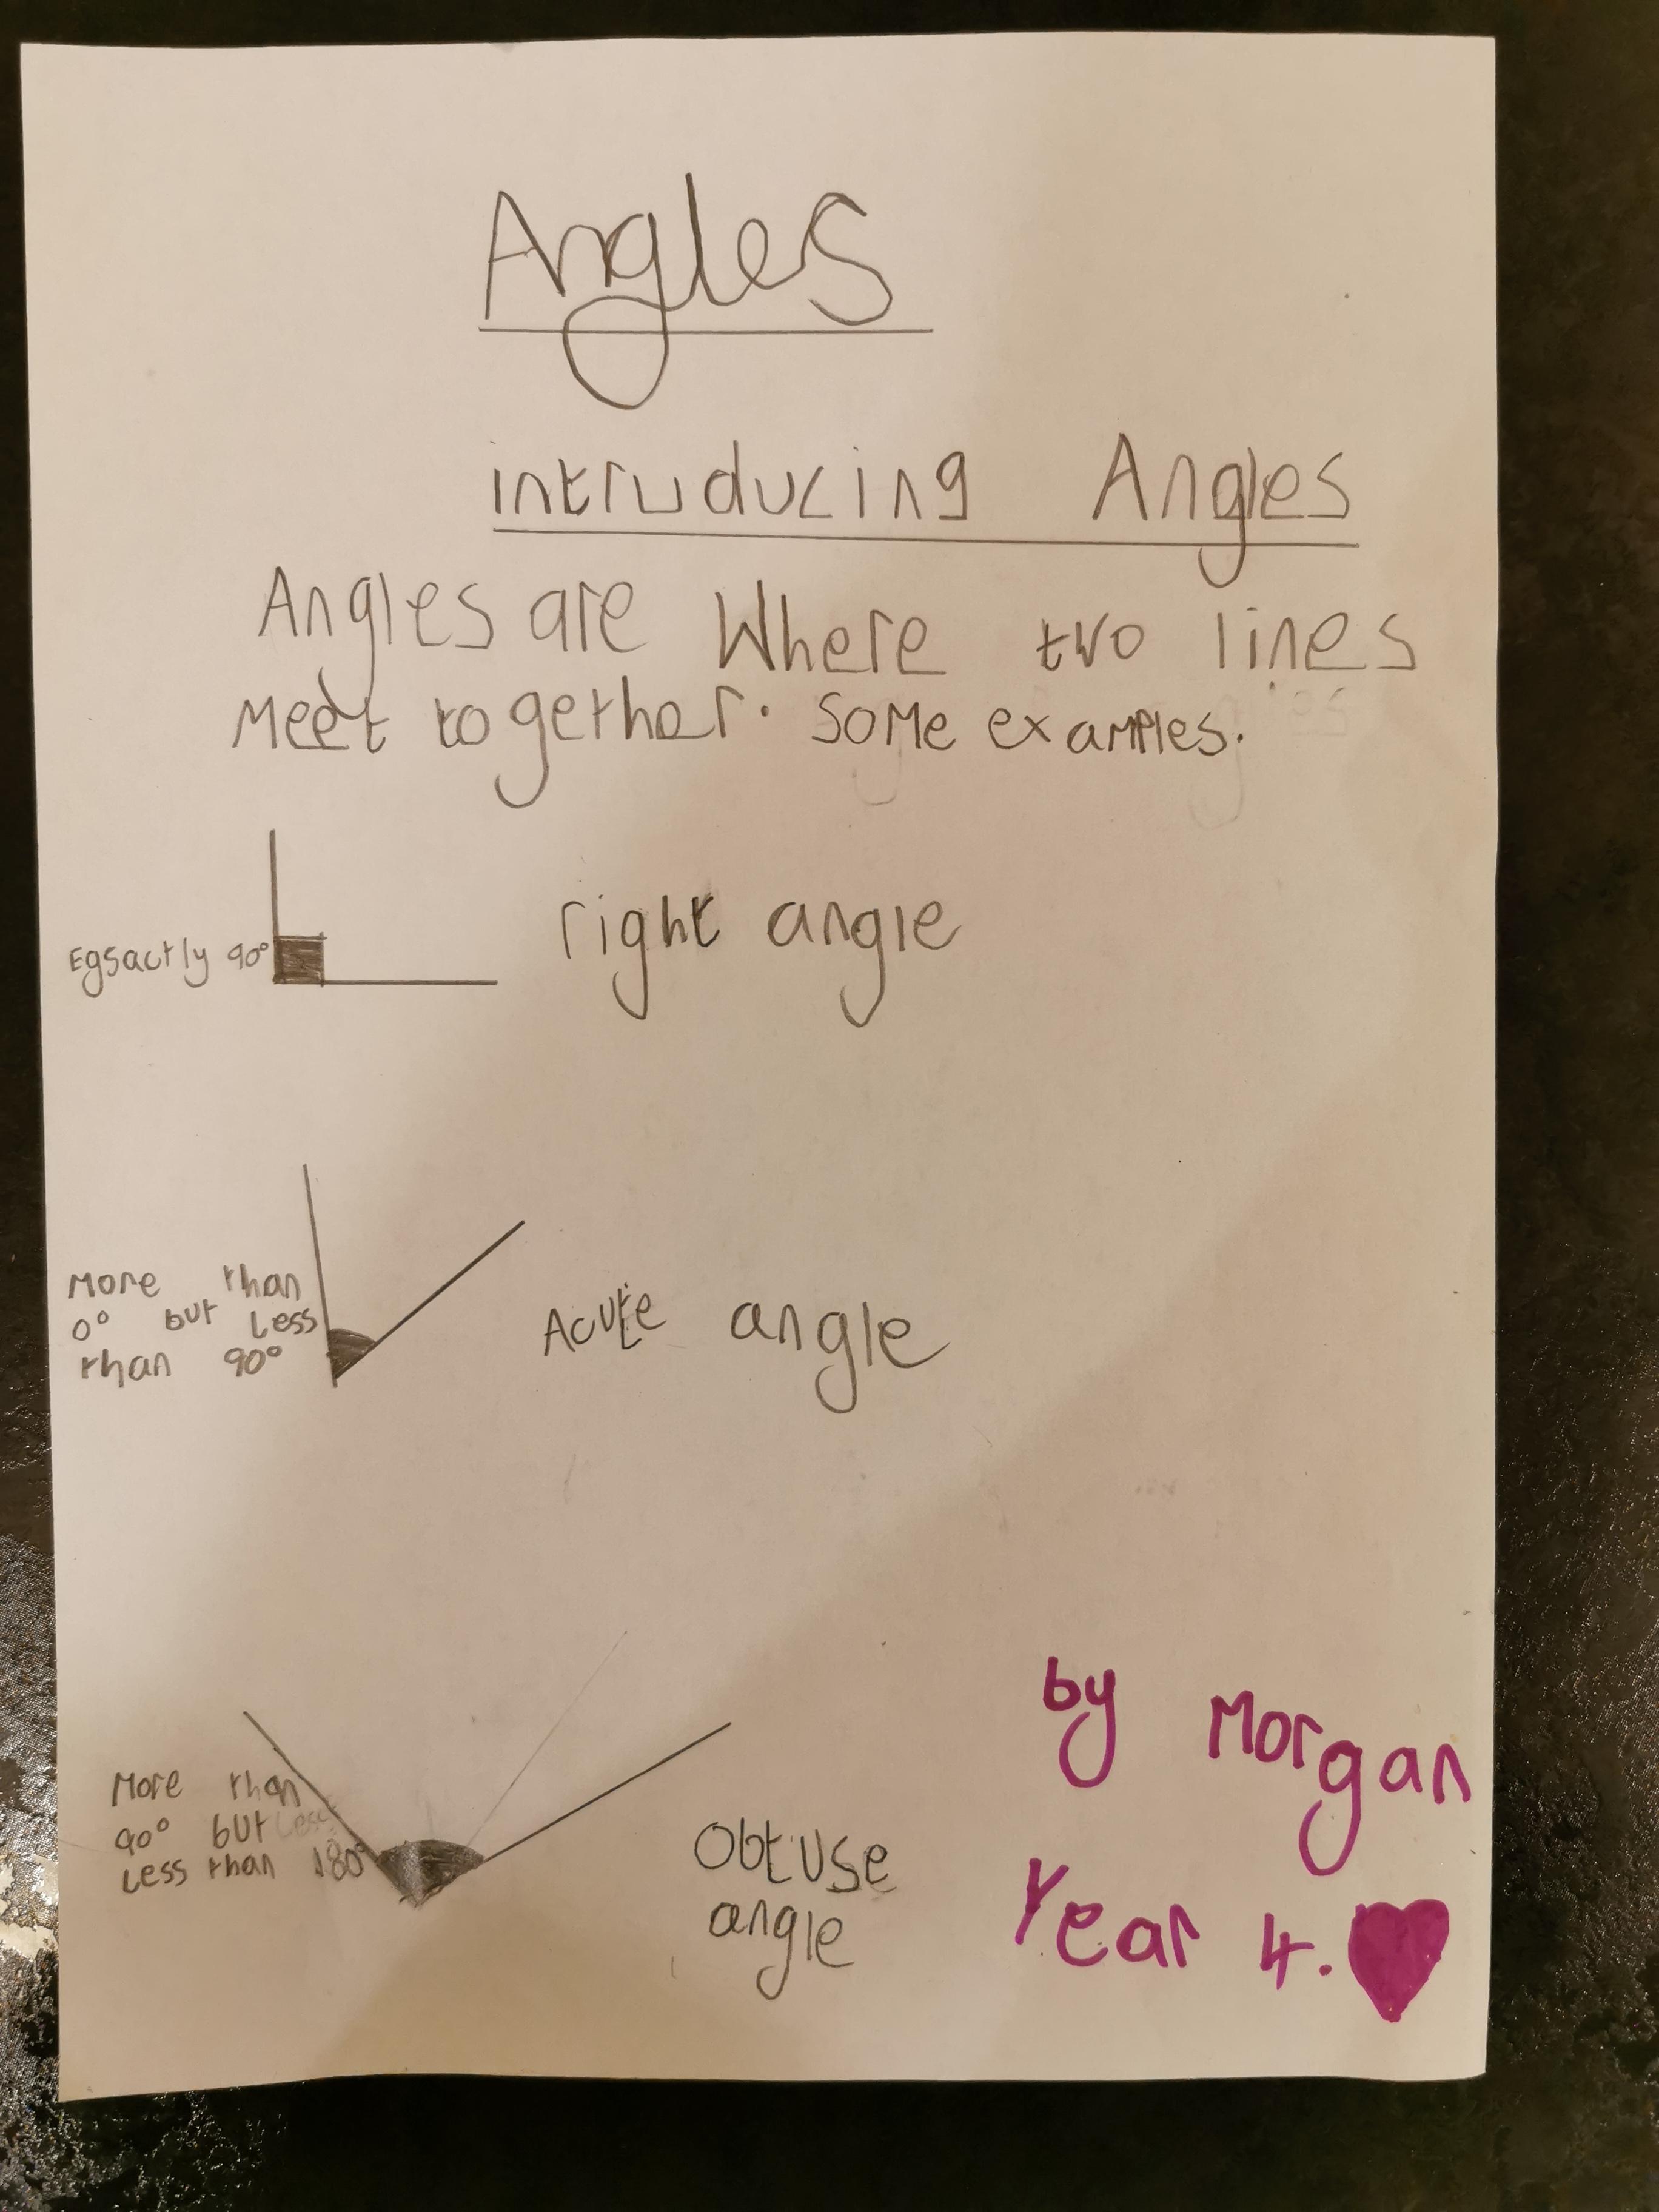 Angles
intruducing Angles
Angles are Where two lines
Meet together. Some examples.
Egsactly 90°
right angle
More than
0° but Less
than 90°
Acute angle
More than
90° but Less
Less than 180°
Obtuse
angle
by Morgan
Year 4.